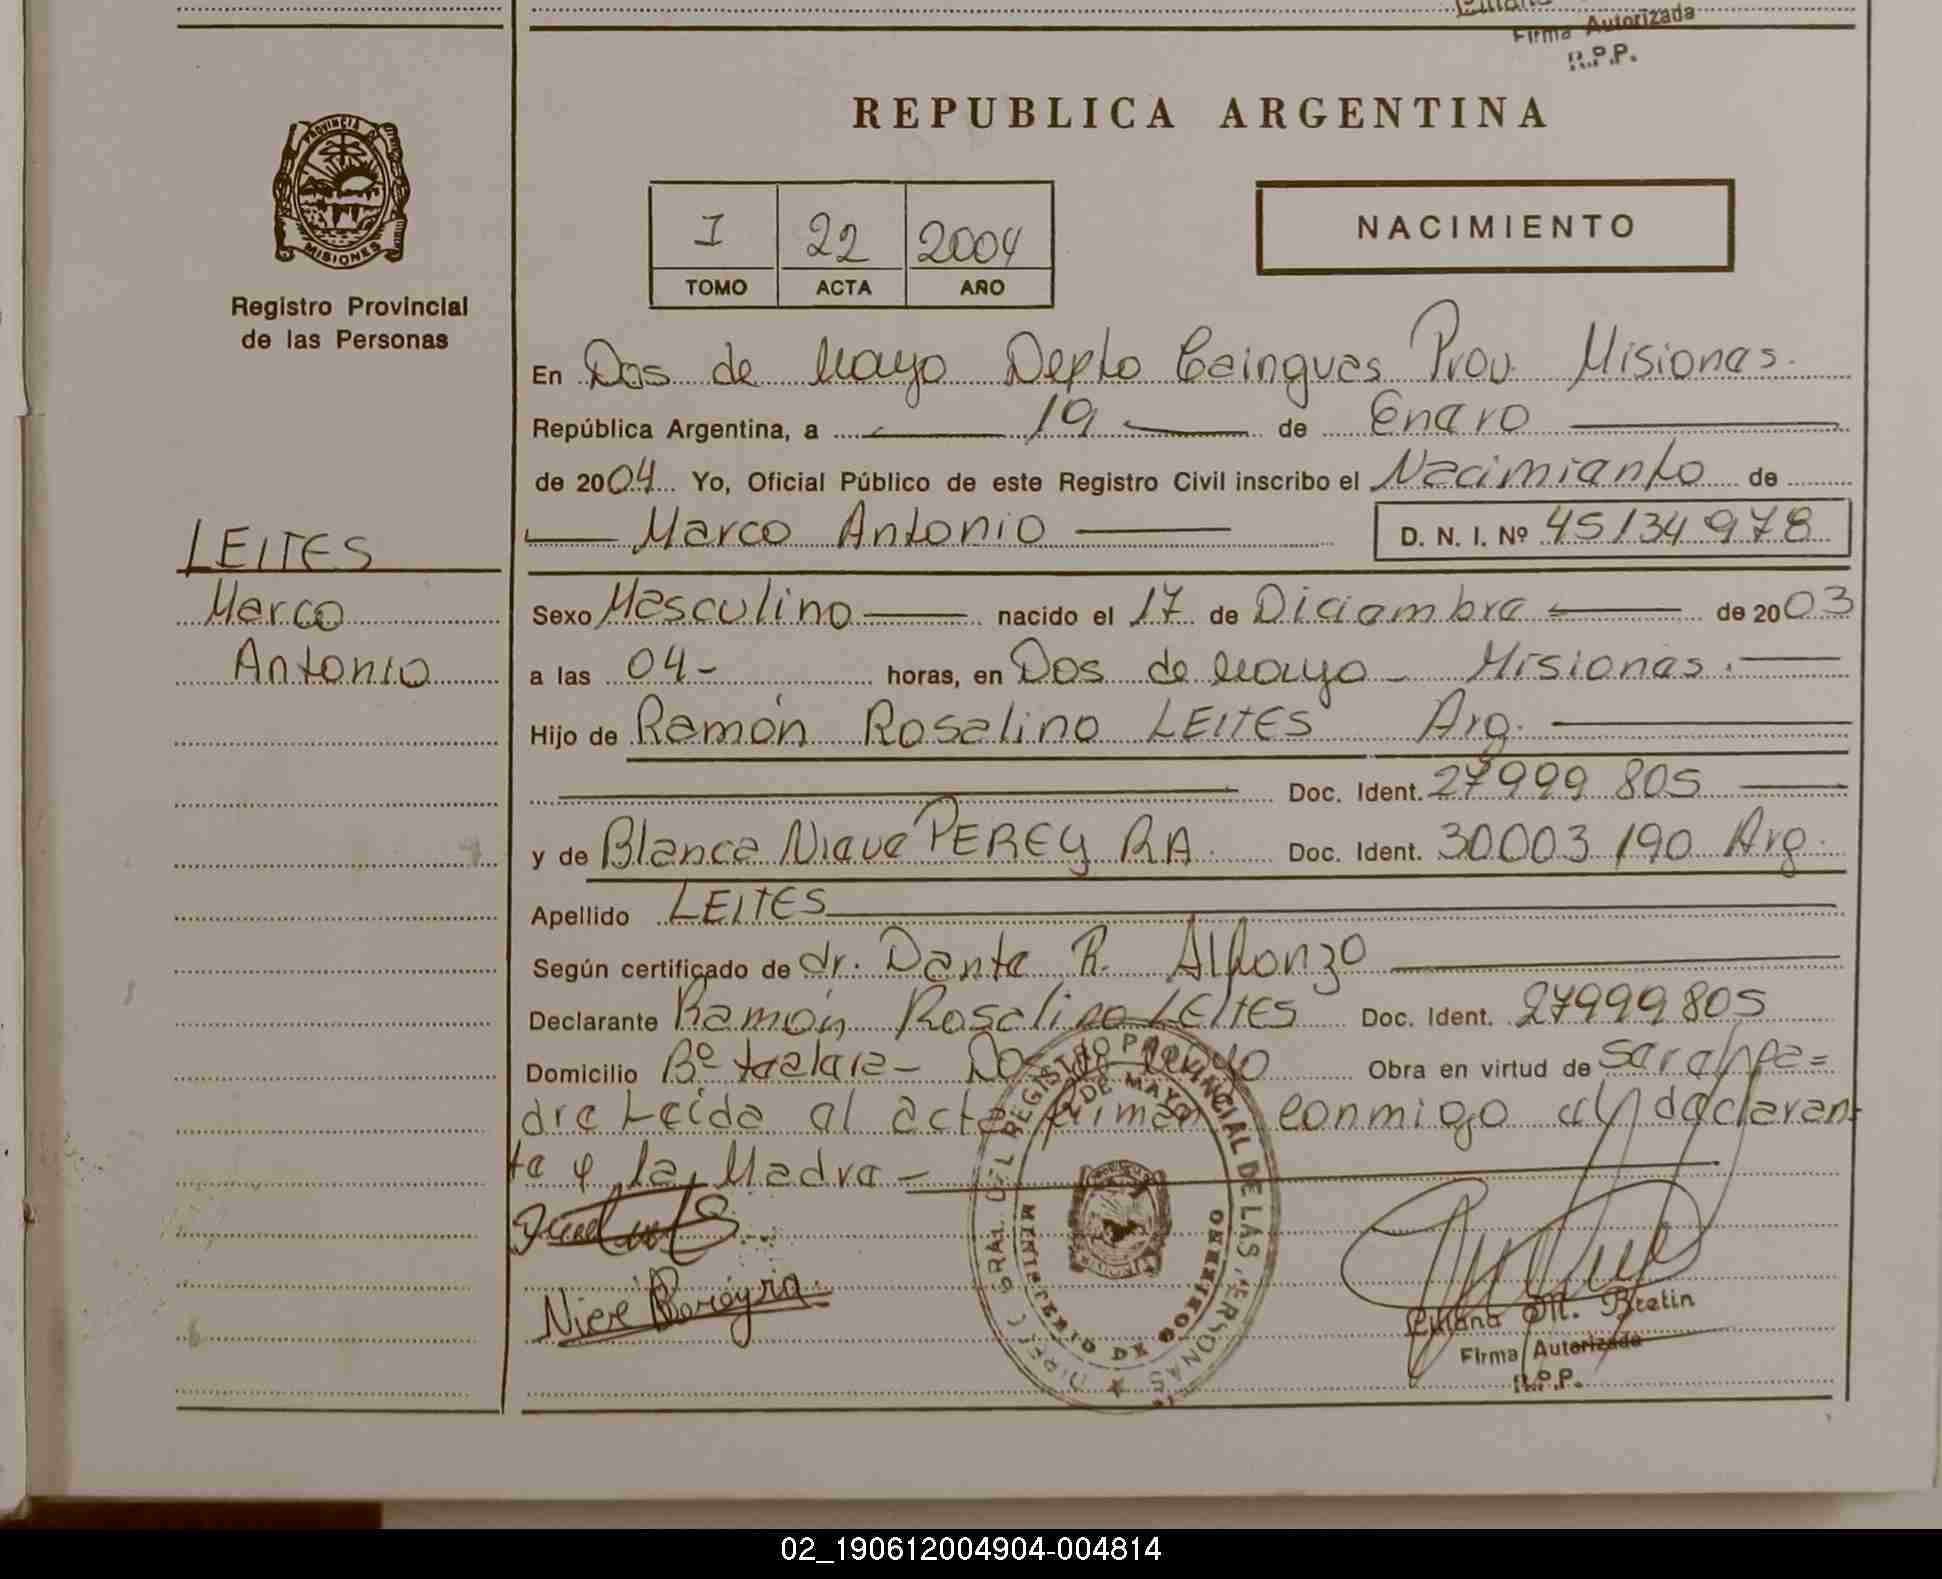 Firma Autorizada
R.P.P.
REPUBLICA ARGENTINA
PROVINCIA DE
MISIONES
Registro Provincial
de las Personas
I 22 2004
TOMO ACTA AÑO
NACIMIENTO
En Dos de Mayo Depto Cainguas Prov. Misiones.
República Argentina, a 19 de Enero
de 2004 Yo, Oficial Público de este Registro Civil inscribo el Nacimiento de
Marco Antonio D. N. I. Nº 45134978
LEITES
Marco
Antonio
Sexo Masculino nacido el 17 de Diciembre de 2003
a las 04- horas, en Dos de Mayo - Misiones.
Hijo de Ramón Rosalino LEITES Arg.
Doc. Ident. 27999805
y de Blanca Nieve PEREYRA Doc. Ident. 30003190 Arg.
Apellido LEITES
Según certificado de dr. Dante R. Alfonzo
Declarante Ramón Rosalino LEITES Doc. Ident. 27999805
Domicilio Bº - Dos de Mayo Obra en virtud de ser el pa=
dre Leída el acta firman conmigo el declaran-
te y la Madre -
DIREC. GRAL. DEL REGISTRO PROVINCIAL DE LAS PERSONAS
2 DE MAYO
MINISTERIO DE GOBIERNO
Nieve Pereyra
Liliana M. Bretin
Firma Autorizada
R.P.P.
02_190612004904-004814